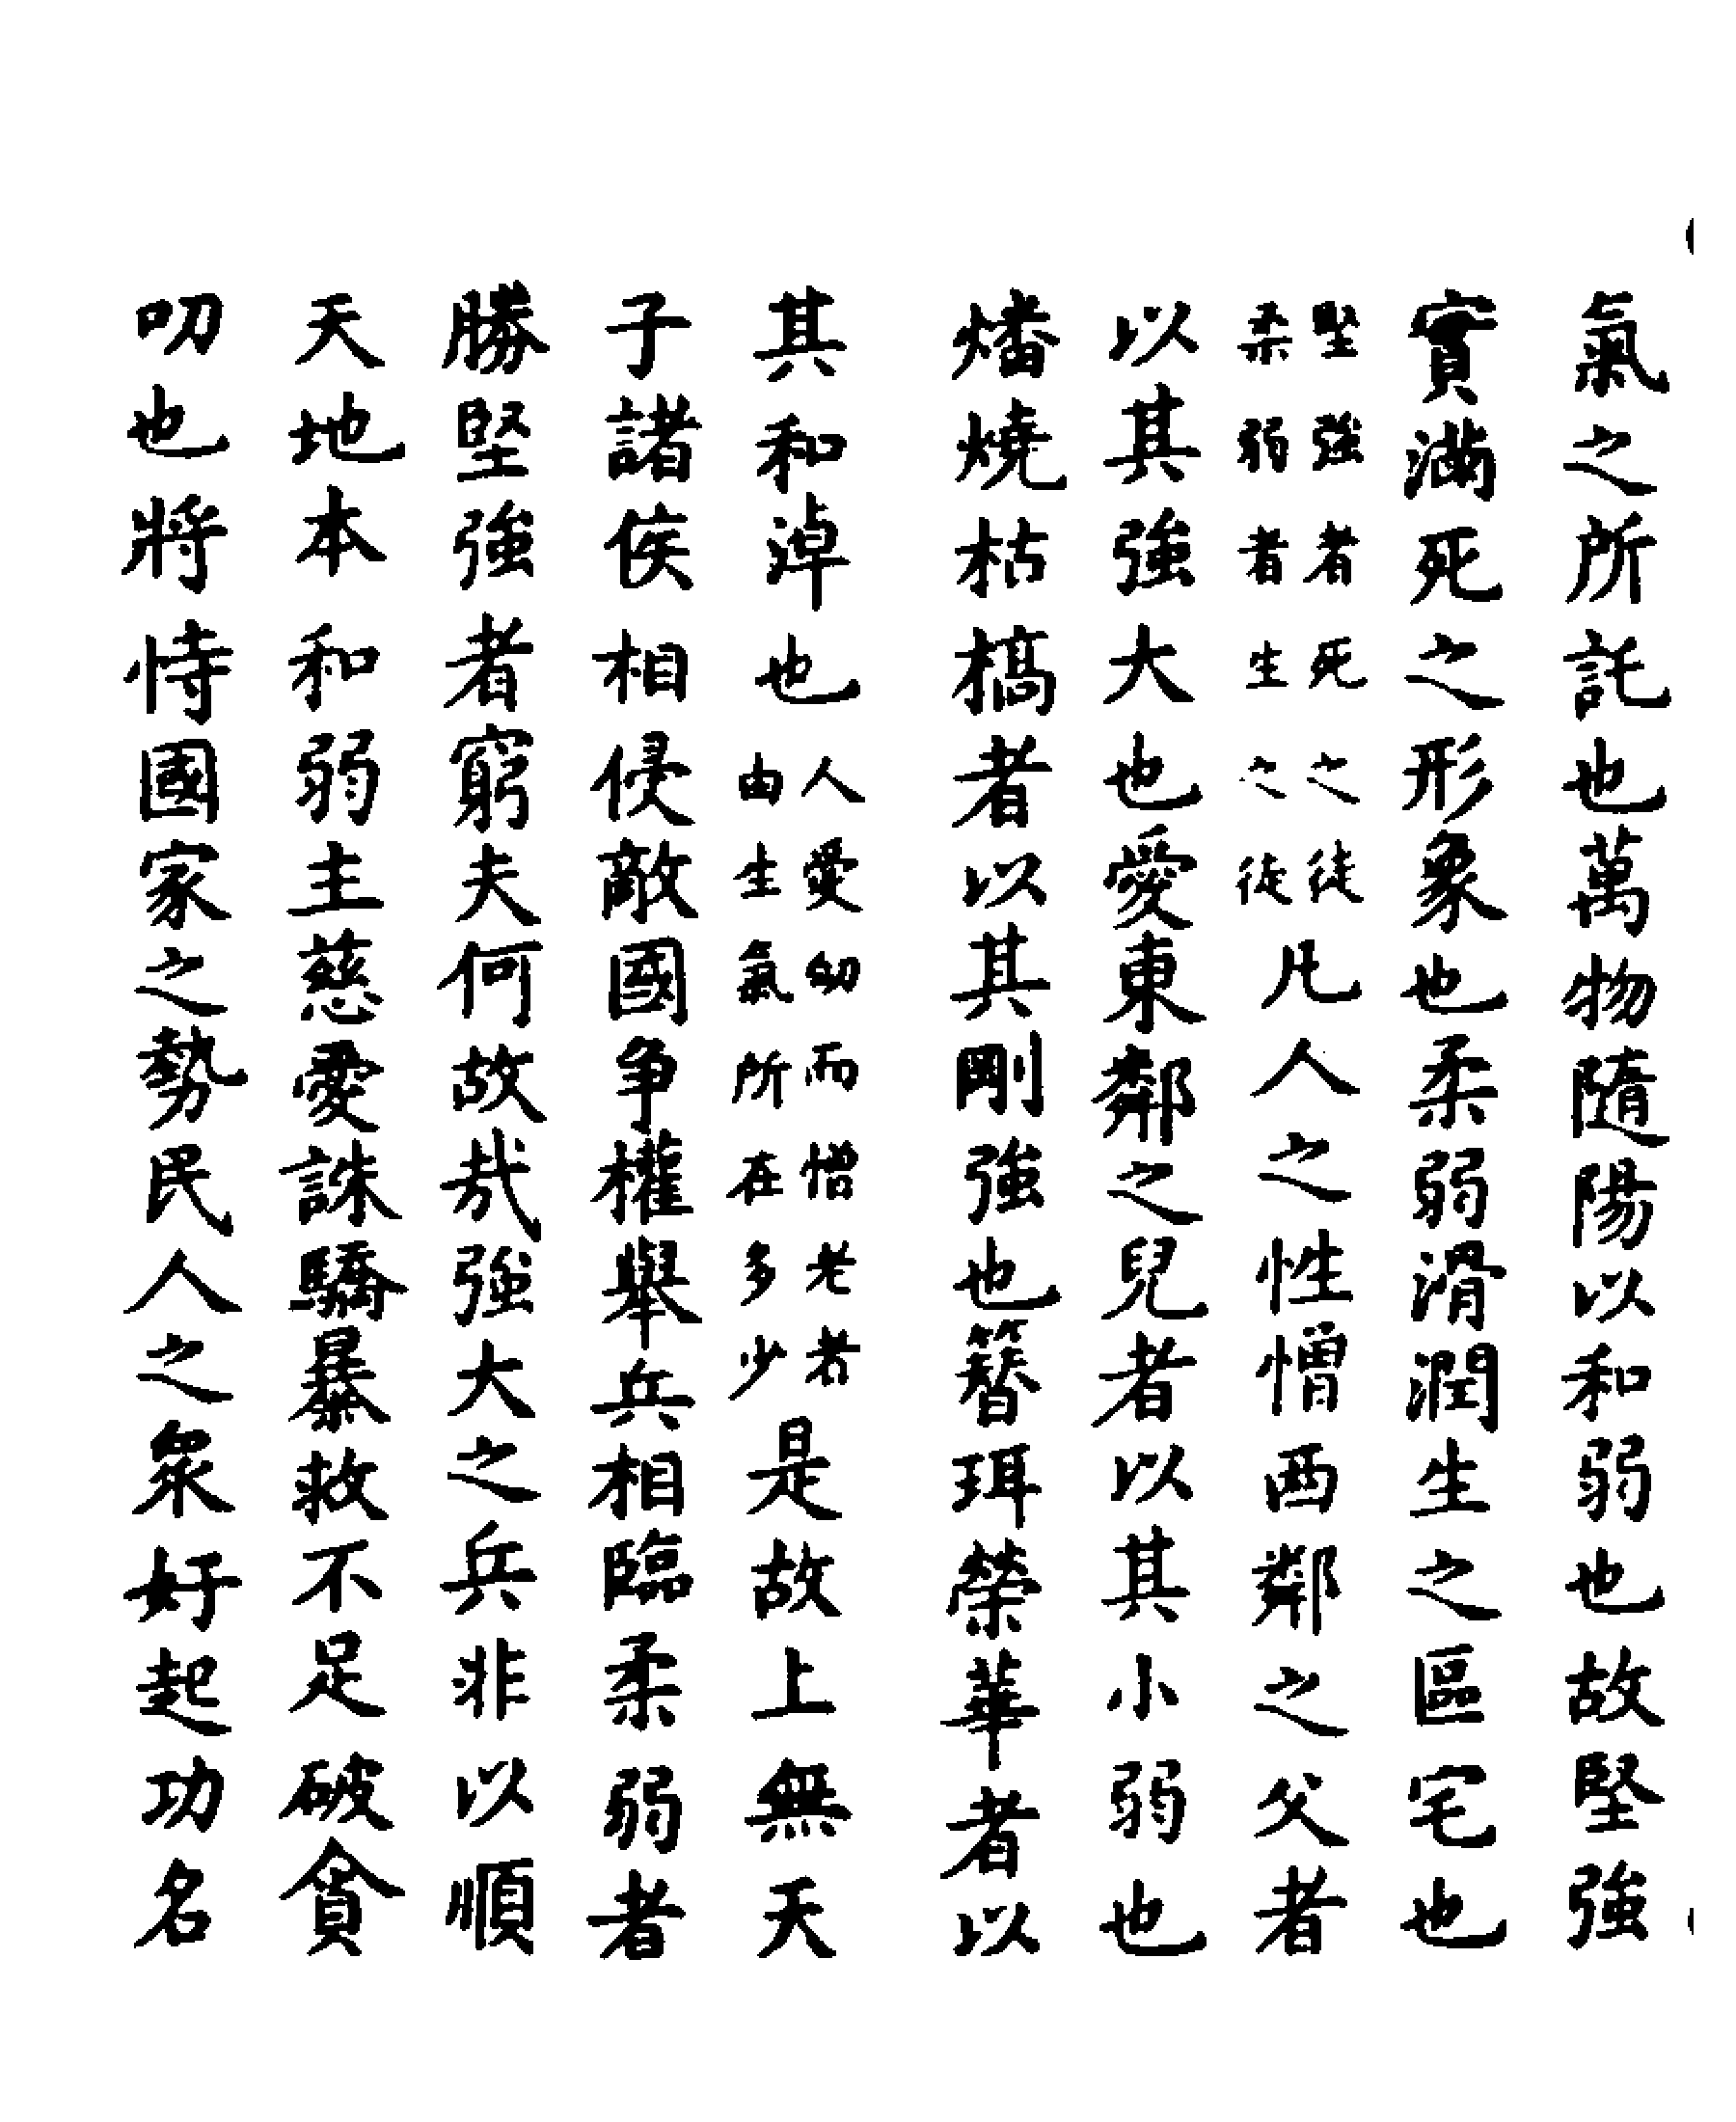 氣之所託也萬物隨陽以和弱也故堅強
實滿死之形象也柔弱滑潤生之區宅也
堅強者死之徒
柔弱者生之徒
凡人之性憎西鄰之父者
以其強大也愛東鄰之兒者以其小弱也
燔燒枯槁者以其剛強也簪珥榮華者以
其和淖也
人愛幼而憎老者
由生氣所在多少
是故上無天
子諸侯相侵敵國爭權舉兵相臨柔弱者
勝堅強者窮夫何故哉強大之兵非以順
天地本和弱主慈愛誅驕暴救不足破貪
叨也將恃國家之勢民人之眾好起功名